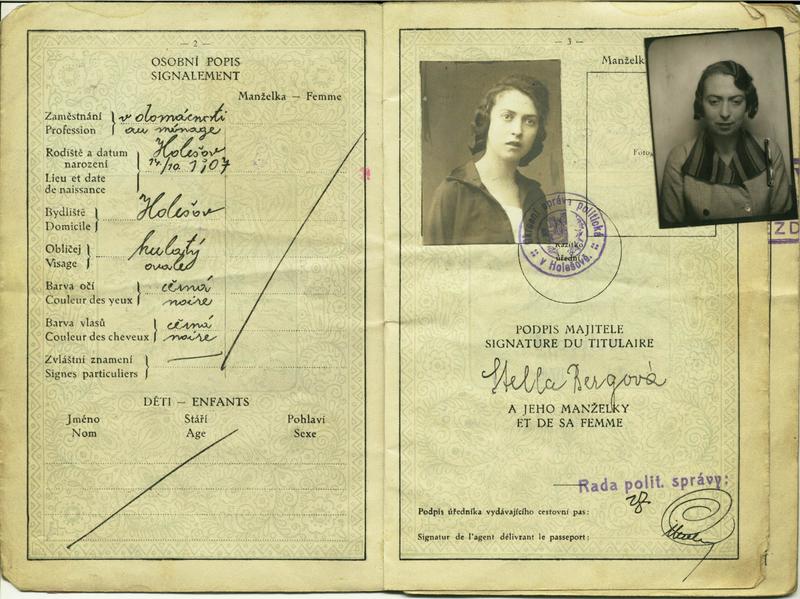 — 2 —
OSOBNÍ POPIS
SIGNALEMENT
Manželka — Femme
Zaměstnání v domácnosti
Profession au ménage
Rodiště a datum Holešov
narození 14/10. 1907
Lieu et date
de naissance
Bydliště Holešov
Domicile
Obličej kulatý
Visage ovale
Barva očí černá
Couleur des yeux noire
Barva vlasů černá
Couleur des cheveux noire
Zvláštní znamení
Signes particuliers
DĚTI — ENFANTS
Jméno Stáří Pohlaví
Nom Age Sexe
— 3 —
Manželk
Fotog
správa politická
v Holešově.
Razítko
úřední
PODPIS MAJITELE
SIGNATURE DU TITULAIRE
Stella Bergová
A JEHO MANŽELKY
ET DE SA FEMME
Rada polit. správy:
Podpis úředníka vydávajícího cestovní pas:
Signatur de l'agent délivrant le passeport: